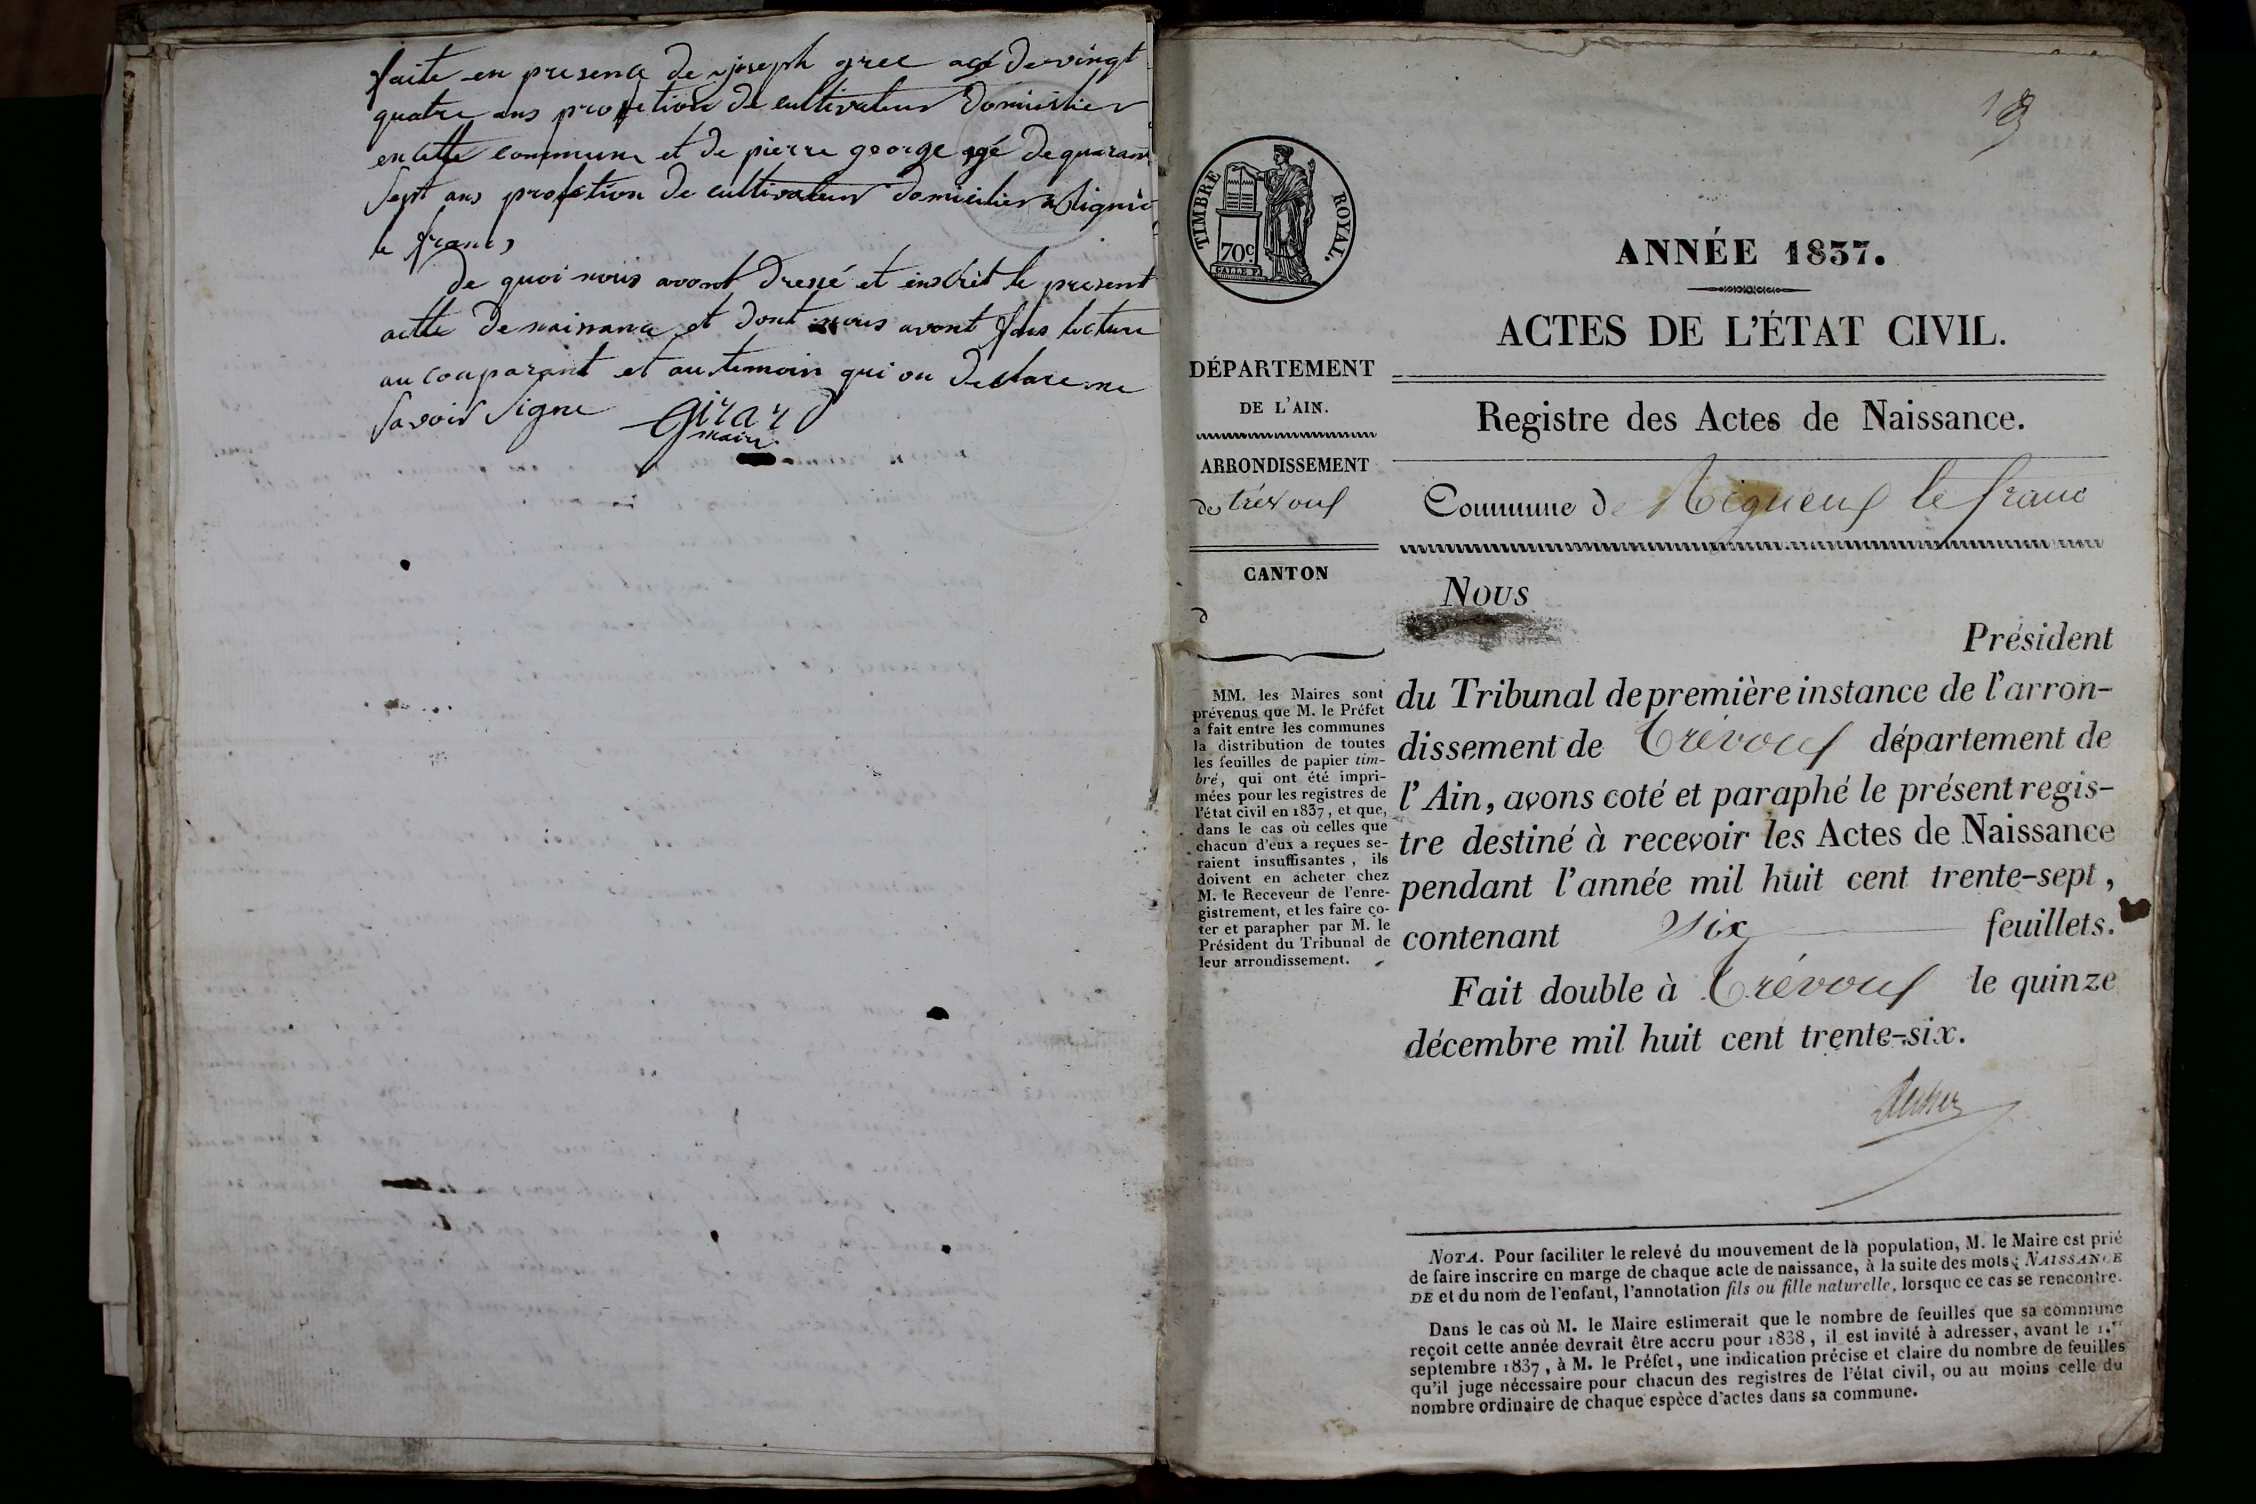 faite en presence de joseph grec agé de vingt
quatre ans profetion de cultivateur domicilier
en cette commune et de pierre george agé de quarant
sept ans profetion de cultivateur domicilier a
le franc,
de quoi nous avont dressé et inscrit le present
actte de naissance et dont nous avont fais lecture
au comparant et au temoin qui on declare ne
savoir signe Girard
maire
TIMBRE ROYAL.
70c
ANNÉE 1837.
ACTES DE L'ÉTAT CIVIL.
Registre des Actes de Naissance.
Commune de Rigneux le franc
DÉPARTEMENT
DE L'AIN.
ARRONDISSEMENT
de trévoux
CANTON
d
MM. les Maires sont
prévenus que M. le Préfet
a fait entre les communes
la distribution de toutes
les feuilles de papier tim-
bré, qui ont été impri-
mées pour les registres de
l'état civil en 1837, et que,
dans le cas où celles que
chacun d'eux a reçues se-
raient insuffisantes, ils
doivent en acheter chez
M. le Receveur de l'enre-
gistrement, et les faire co-
ter et parapher par M. le
Président du Tribunal de
leur arrondissement.
Nous
Président
du Tribunal de première instance de l'arron-
dissement de Trévoux département de
l'Ain, avons coté et paraphé le présent regis-
tre destiné à recevoir les Actes de Naissance
pendant l'année mil huit cent trente-sept,
contenant six feuillets.
Fait double à Trévoux le quinze
décembre mil huit cent trente-six.
NOTA. Pour faciliter le relevé du mouvement de la population, M. le Maire est prié
de faire inscrire en marge de chaque acte de naissance, à la suite des mots: NAISSANCE
DE et du nom de l'enfant, l'annotation fils ou fille naturelle, lorsque ce cas se rencontre.
Dans le cas où M. le Maire estimerait que le nombre de feuilles que sa commune
reçoit cette année devrait être accru pour 1838, il est invité à adresser, avant le 1.er
septembre 1837, à M. le Préfet, une indication précise et claire du nombre de feuilles
qu'il juge nécessaire pour chacun des registres de l'état civil, ou au moins celle du
nombre ordinaire de chaque espèce d'actes dans sa commune.